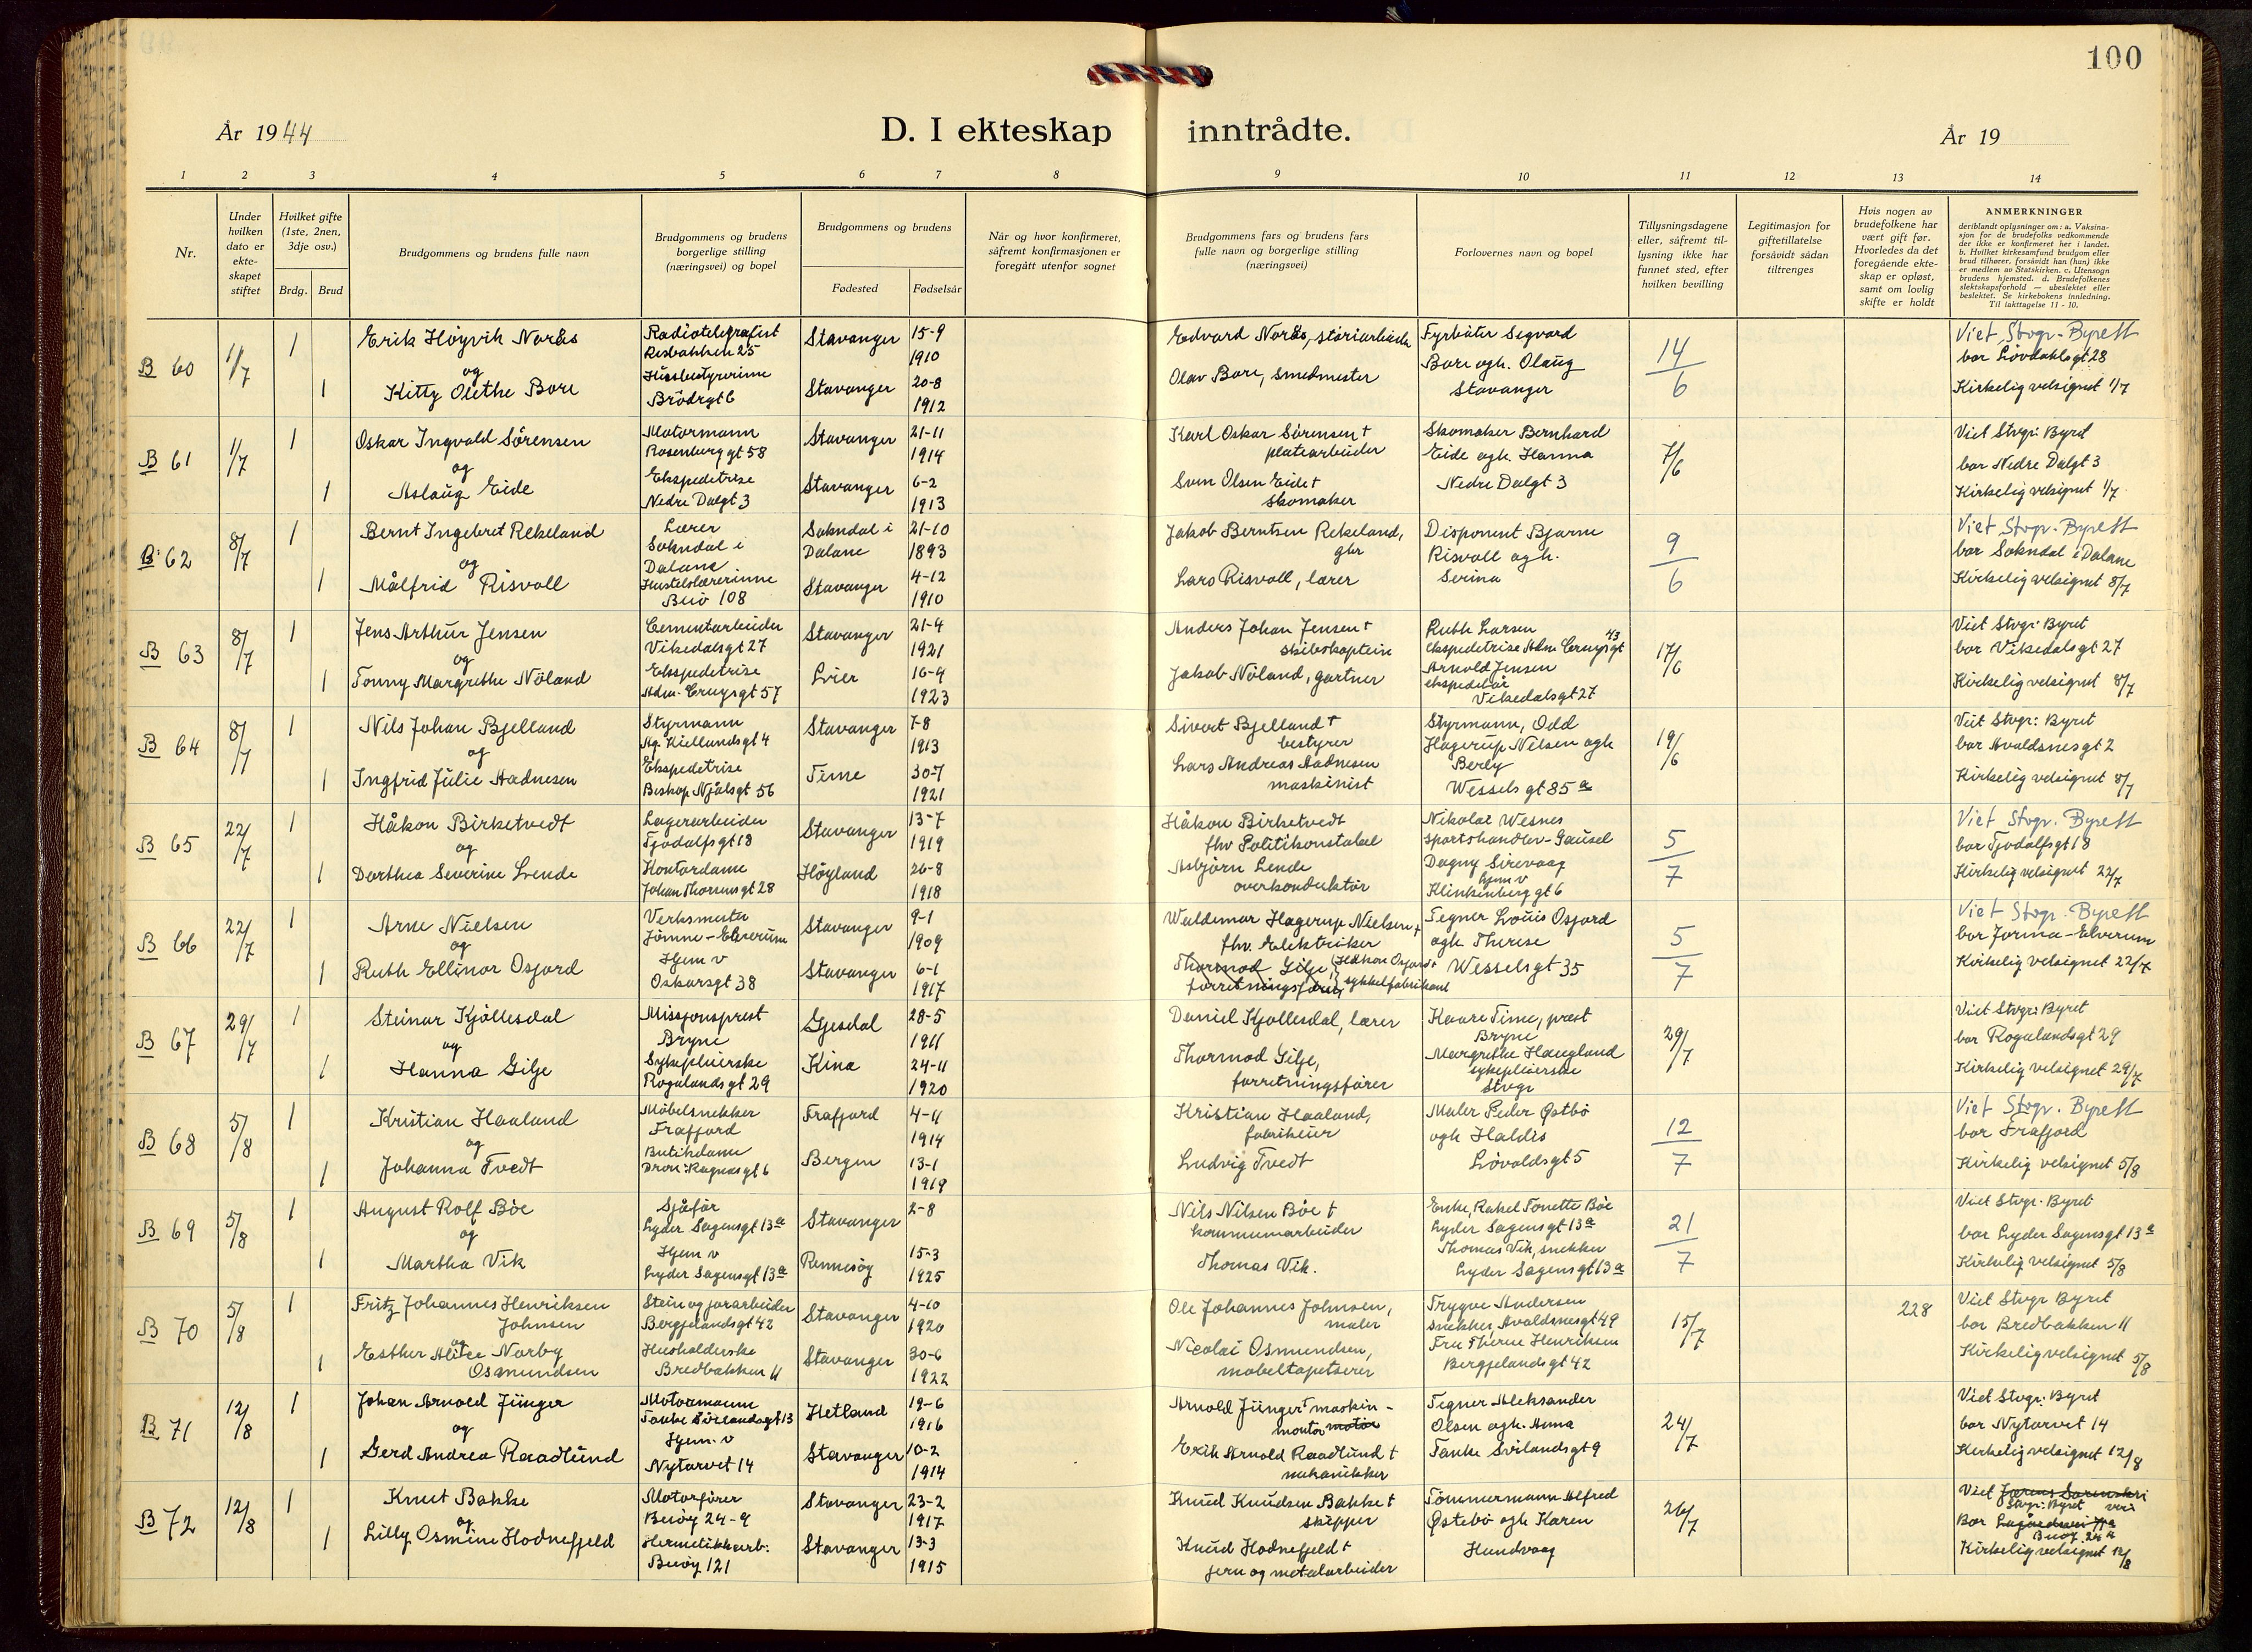 100
År 1944
D. I ekteskap inntrådte.
År 19
1 2 3 4 5 6 7 8 9 10 11 12 13 14
Nr.
Under hvilken dato er ekte-skapet stiftet
Hvilket gifte (1ste, 2nen, 3dje osv.)
Brdg. Brud
Brudgommens og brudens fulle navn
Brudgommens og brudens borgerlige stilling (næringsvei) og bopel
Brudgommens og brudens
Fødested Fødselsår
Når og hvor konfirmeret, såfremt konfirmasjonen er foregått utenfor sognet
Brudgommens fars og brudens fars fulle navn og borgerlige stilling (næringsvei)
Forlovernes navn og bopel
Tillysningsdagene eller, såfremt til-lysning ikke har funnet sted, efter hvilken bevilling
Legitimasjon for giftetillatelse forsåvidt sådan tiltrenges
Hvis nogen av brudefolkene har vært gift før. Hvorledes da det foregående ekte-skap er opløst, samt om lovlig skifte er holdt
ANMERKNINGER
deriblandt oplysninger om: a. Vaksina-sjon for de brudefolks vedkommende der ikke er konfirmeret her i landet. b. Hvilket kirkesamfund brudgom eller brud tilhører, forsåvidt han (hun) ikke er medlem av Statskirken. c. Utensogn brudens hjemsted. d. Brudefolkenes slektskapsforhold — ubeslektet eller beslektet. Se kirkebokens innledning. Til iakttagelse 11 - 10.
B 60
1/7
1
1
Erik Höyvik Norås
og
Kitty Olethe Bore
Radiotelegrafist
Resbakken 25
Husbestyrerinne
Brödrgt 6
Stavanger 15-9 1910
Stavanger 20-8 1912
Edvard Norås,
Olav Bore, smedmester
Fyrböter Sigvard
Bore ogh. Olaug
Stavanger
14/6
Viet Stvgr. Byrett
bor Lövdahlsgt 28
Kirkelig velsignet 1/7
B 61
1/7
1
1
Oskar Ingvald Sörensen
og
Aslaug Eide
Motormann
Rosenberggt 58
Ekspedetrise
Nedre Dalgt 3
Stavanger 21-11 1914
Stavanger 6-2 1913
Karl Oskar Sörensen †
platearbeider
Sven Olsen Eide †
skomaker
Skomaker Bernhard
Eide ogh. Hanna
Nedre Dalgt 3
7/6
Viet Stvgr. Byret
bor Nedre Dalgt 3
Kirkelig velsignet 1/7
B 62
8/7
1
1
Bernt Ingebret Rekeland
og
Målfrid Risvoll
Lærer
Sokndal i
Dalane
Buöy 108
Sokndal i Dalane 21-10 1893
Stavanger 4-12 1910
Jakob Berntsen Rekeland,
Lars Risvoll, lærer
Disponent Bjarne
Risvoll ogh.
Serina
9/6
Viet Stvgr. Byrett
bor Sokndal i Dalane
Kirkelig velsignet 8/7
B 63
8/7
1
1
Jens Arthur Jensen
og
Tonny Margrethe Nöland
Cementarbeider
Vikedalsgt 27
Ekspedetrise
Adm. Cruysgt 57
Stavanger 21-4 1921
Lier 16-4 1923
Anders Johan Jensen †
skibskaptein
Jakob Nöland, gartner
Ruth Larsen
ekspedetrise Adm Cruysgt 43
Arnold Jensen
ekspeditör
Vikedalsgt 27
17/6
Viet Stvgr. Byret
bor Vikedalsgt 27
Kirkelig velsignet 8/7
B 64
8/7
1
1
Nils Johan Bjelland
og
Ingfrid Julie Aadnesen
Styrmann
Ag. Kiellandsgt 4
Ekspedetrise
Biskop Njålsgt 56
Stavanger 7-8 1913
Time 30-7 1921
Sivert Bjelland †
bestyrer
Lars Andreas Aadnesen
maskinist
Styrmann, Odd
Hagerup Nelsen ogh
Berly
Wessels gt 85 a
19/6
Viet Stvgr: Byret
bor Avaldsnesgt 2
Kirkelig velsignet 8/7
B 65
22/7
1
1
Håkon Birketvedt
og
Dorthea Severine Lende
Lagerarbeider
Tjodolfsgt 18
Kontordame
Johan Thorsensgt 28
Stavanger 13-7 1919
Höyland 26-8 1918
Håkon Birketvedt
fhv Politikonstabel
Asbjörn Lende
overkonduktör
Nikolai Wesnes
sportshandler-Gausel
Dagny Sirevaag
hjem v
Klinkenberg gt 6
5/7
Viet Stvgr. Byrett
bor Tjodolfsgt 18
Kirkelig velsignet 22/7
B 66
22/7
1
1
Arne Nielsen
og
Ruth Ellinor Osfjord
Verksmester
Jömne-Elverum
Hjem v
Oskarsgt 38
Stavanger 9-1 1909
Stavanger 6-1 1917
Waldemar Hagerup Nielsen †
fhv. Elektriker
Thormod Gilje, (Håkon Osfjord †
forretningsförer, sykkelfabrikant
Tegner Louis Osfjord
ogh Therese
Wesselsgt 35
5/7
Viet Stvgr. Byrett
bor Jömna-Elverum
Kirkelig velsignet 22/7
B 67
29/7
1
1
Steinar Kjöllesdal
og
Hanna Gilje
Missjonsprest
Bryne
Sykepleierske
Rogalandsgt 29
Gjesdal 28-5 1911
Kina 24-11 1920
Daniel Kjöllesdal, lærer
Thormod Gilje,
forretningsförer
Kaare Time, prest
Bryne
Margrethe Haugland
sykepleierske
Stvgr
29/7
Viet Stvgr: Byret
bor Rogalandsgt 29
Kirkelig velsignet 29/7
B 68
5/8
1
1
Kristian Haaland
og
Johanna Tvedt
Möbelsnekker
Frafjord
Butikdame
Dron. Ragnasgt 6
Frafjord 4-11 1914
Bergen 13-1 1919
Kristian Haaland,
fabrikeier
Ludvig Tvedt
Maler Peder Østbö
ogh Haldis
Lövoldsgt 5
12/7
Viet Stvgr. Byrett
bor Frafjord
Kirkelig velsignet 5/8
B 69
5/8
1
1
August Rolf Böe
og
Martha Vik
Sjåför
Lyder Sagensgt 13a
Hjem v
Lyder Sagensgt 13a
Stavanger 2-8
Rennesöy 15-3 1925
Nils Nilsen Böe †
kommunearbeider
Thomas Vik.
Enke, Rakel Tonette Böe
Lyder Sagensgt 13a
Thomas Vik, snekker
Lyder Sagensgt 13a
21/7
Viet Stvgr. Byret
bor Lyder Sagensgt 13a
Kirkelig velsignet 5/8
B 70
5/8
1
1
Fritz Johannes Henriksen
Johnsen
og
Esther Alice Norby
Osmundsen
Stein og jorarbeider
Bergjelandsgt 42
Husholderske
Bredbakken 11
Stavanger 4-10 1920
Stavanger 30-6 1922
Ole Johannes Johnsen,
maler
Nicolai Osmundsen,
möbeltapetserer
Trygve Andersen
snekker, Avaldsnesgt 49
Fru Therese Henriksen
Bergjelandsgt 42
15/7
228
Viet Stvgr Byret
bor Bredbakken 11
Kirkelig velsignet 5/8
B 71
12/8
1
1
Johan Arnold Jünger
og
Gerd Andrea Raadlund
Motormann
Tanke Svilandsgt 13
Hjem. v
Nytorvet 14
Hetland 19-6 1916
Stavanger 10-2 1914
Arnold Jünger † maskin-
montör motor
Erik Arnold Raadlund †
mekanikker
Tegner Aleksander
Olsen ogh. Anna
Tanke Svilandsgt 9
24/7
Viet Stvgr: Byret
bor Nytorvet 14
Kirkelig velsignet 12/8
B 72
12/8
1
1
Knut Bakke
og
Lilly Osmine Hodnefjeld
Motorförer
Buöy 24-9
Hermetikkarb:
Buöy 121
Stavanger 23-2 1917
Stavanger 13-3 1915
Knud Knudsen Bakke †
skipper
Knud Hodnefjeld †
jern og metalarbeider
Tömmermann Alfred
Østebö ogh Karen
Hundvaag
26/7
Viet Jærens Sorenskri
Stvgr. Byret veri
Bor
Buöy 24 a
Kirkelig velsignet 12/8